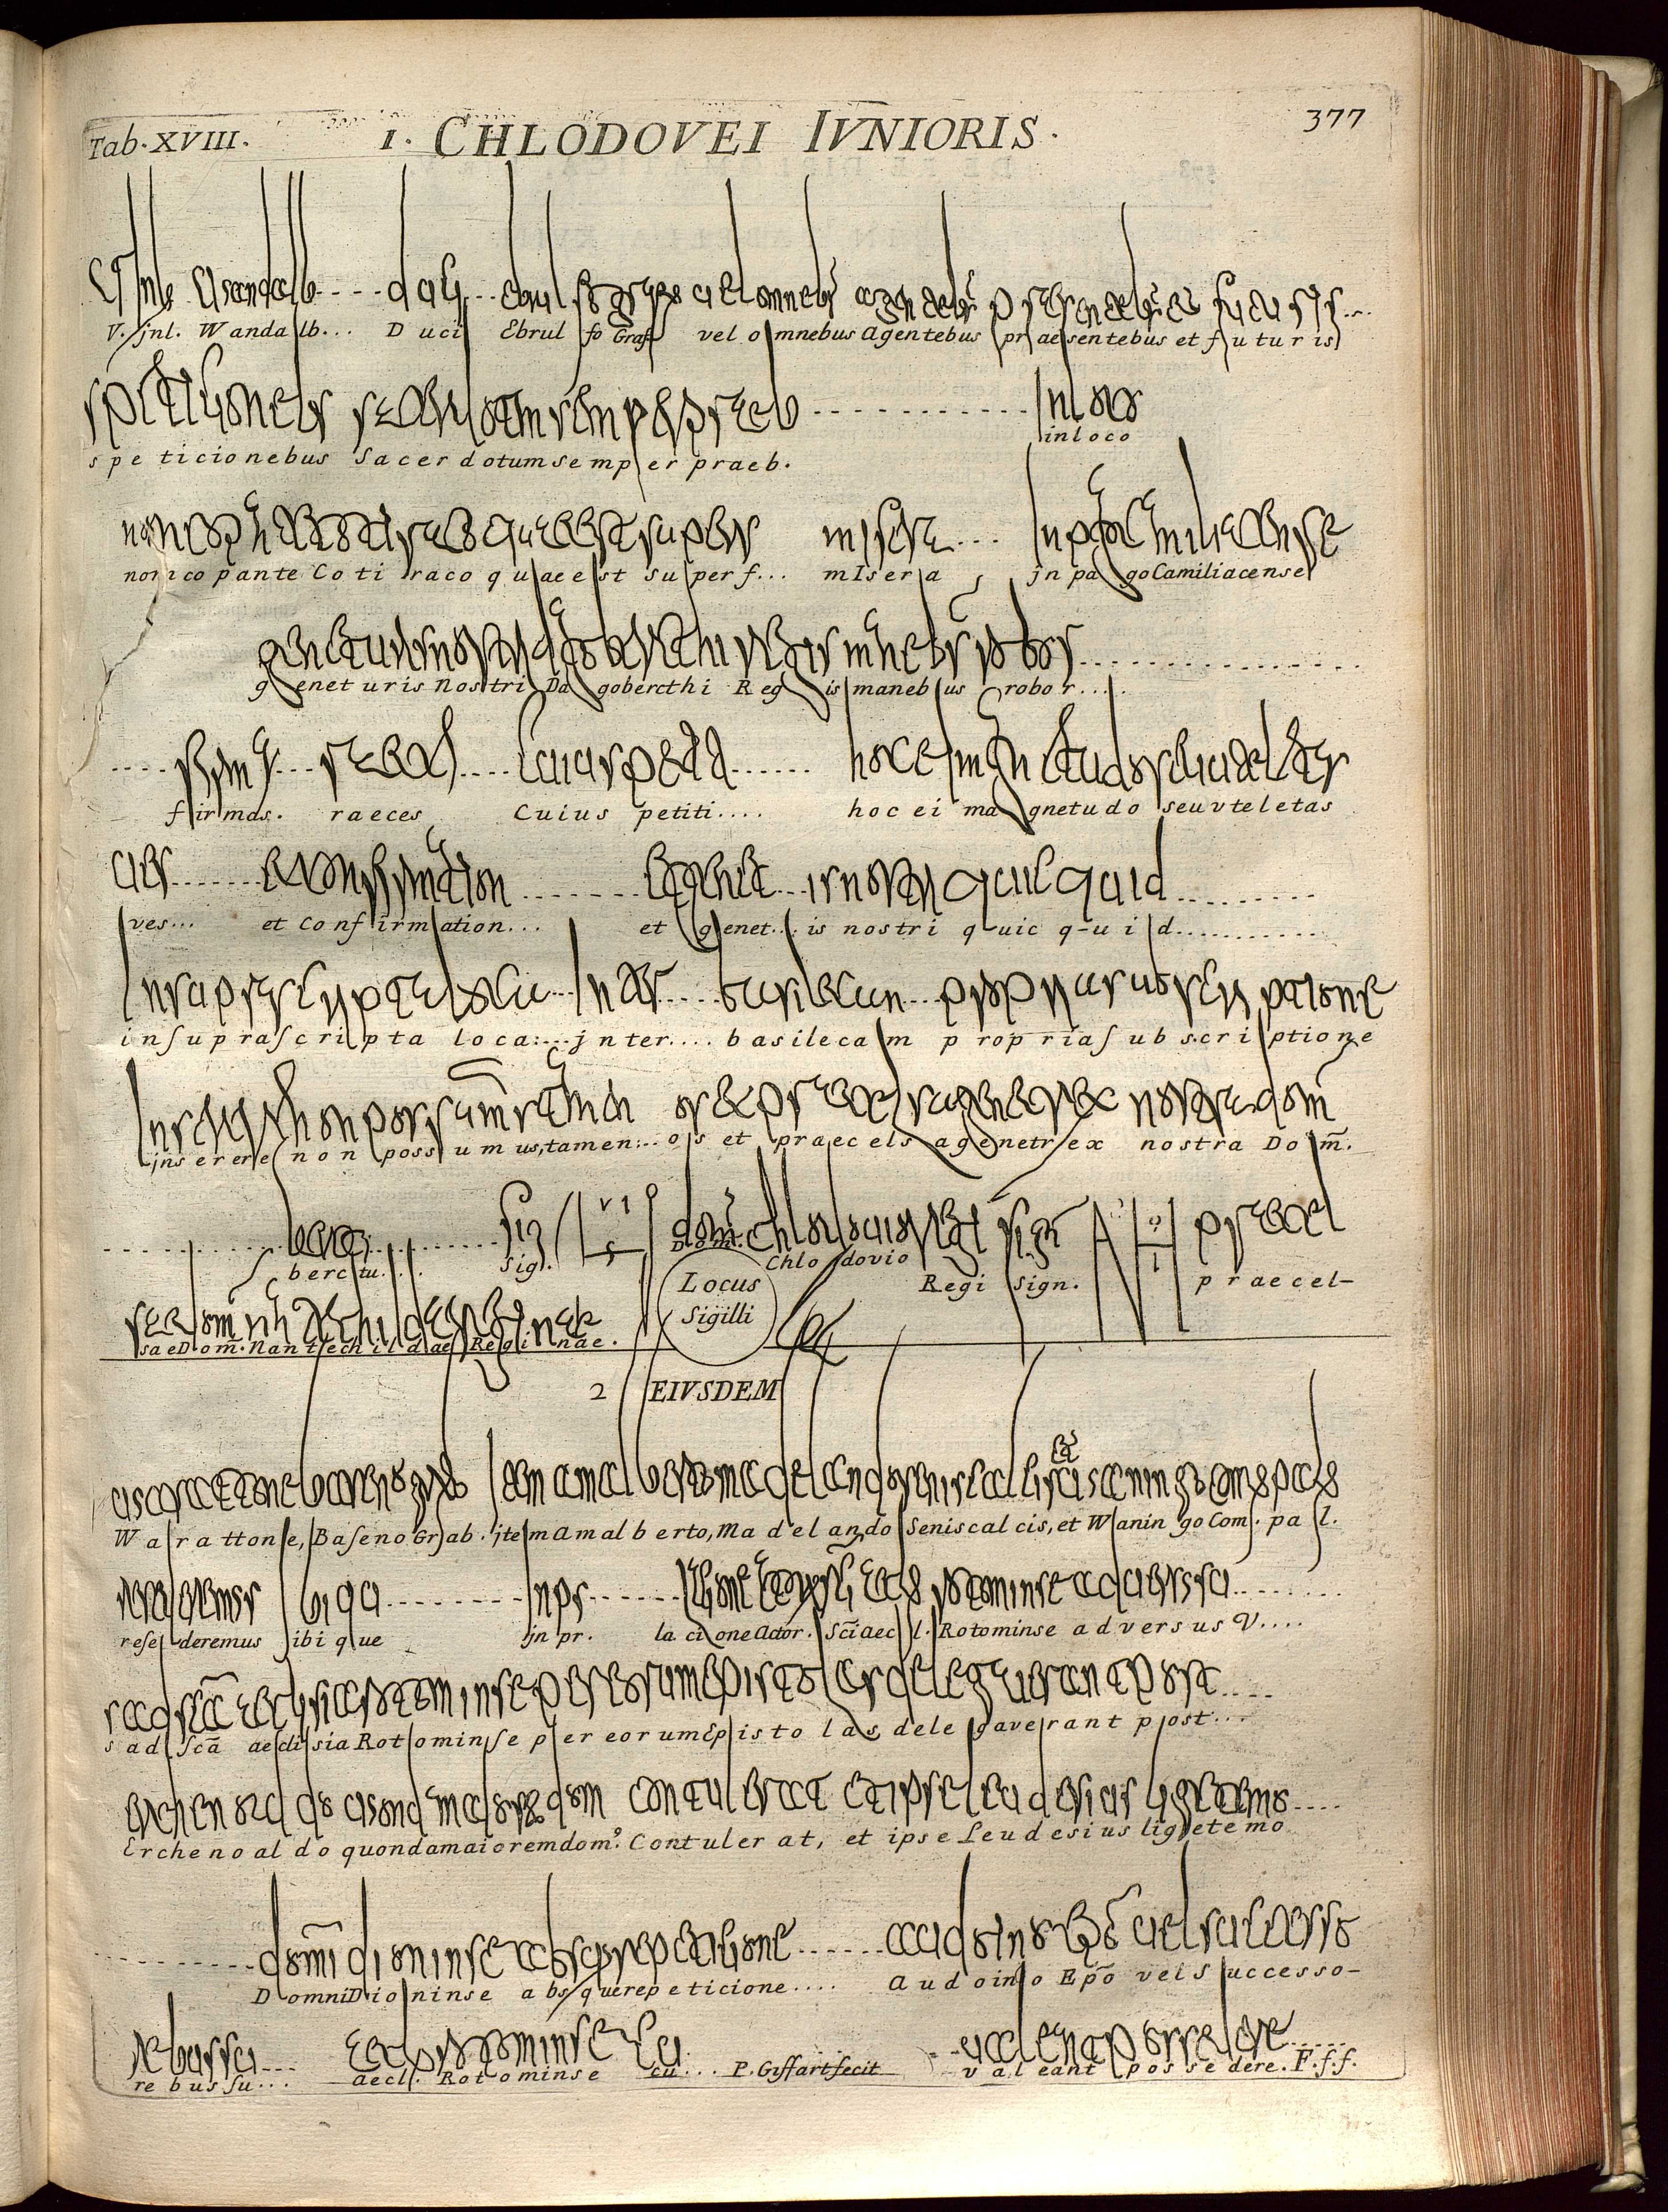 Tab. XVIII. 1. CHLODOVEI IVNIORIS. 377
V. jnl. Wandalb... Duci Ebrulfo Graf. vel omnebus Agentebus praesentebus et futuris
speticionebus Sacerdotum semper praeb. in loco
nonico pante Cotiraco quae est superf... mIseria jn pago Camiliacense
geneturis nostri Dagobercthi Regis manebus robor....
firmas. raeces Cuius petiti.... hoc ei magnetudo seu vteletas
ves... et Confirmation... et genet... is nostri quic q-uid............
in suprascripta loca:...jnter.... basilecam propria subscriptione
jnserere non possumus, tamen:..os et praecels agenetrex nostra Dom̄.
berctu.... Sig. Dom. Chlodovio Regi Sign. praecel-
Locus
Sigilli
sae Dom̄. Nantechildae Reginae.
2 EIVSDEM
Warattone, Baseno Grab. jtem Amalberto, Madelando Seniscalcis, et Waningo Com. pal.
resederemus ibique jn pr. lacione Actor. Sc̄i aecl. Rotominse adversus V....
s ad scā aeclisia Rotominse per eorum Epistolas delegaverant post...
Erchenoaldo quondam aiorem dom⁹. Contulerat, et ipse Leudesius ligetemo
Domni Dioninse absque repeticione.... Audoino Ep̄o vel Successo-
rebus su... aecl. Rotominse cu... P. Giffart fecit valeant possedere. F.f.f.